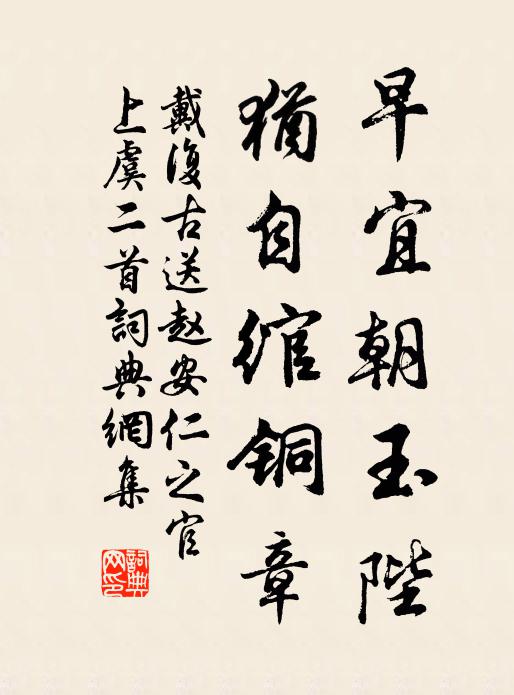 早宜朝玉陛
猶自綰铜章
戴復古送赵安仁之官
上虞二首詞典網集
詞典网印